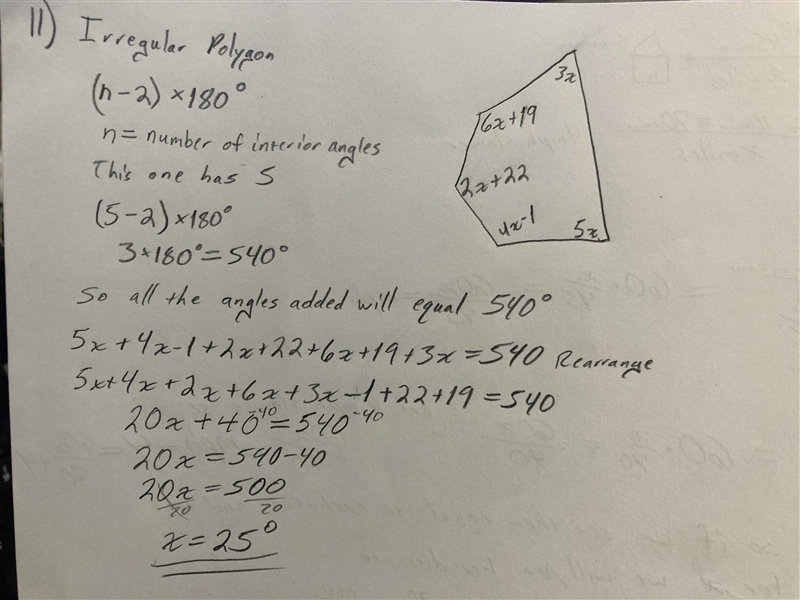 11) Irregular Polygon
(n-2)×180°
n= number of interior angles
This one has 5
(5-2)×180°
3×180°=540°
3x
6x+19
2x+22
4x-1
5x
So all the angles added will equal 540°
5x+4x-1+2x+22+6x+19+3x=540 Rearrange
5x+4x+2x+6x+3x-1+22+19=540
20x+40-40=540-40
20x=540-40
20x=500
20 20
x=25°